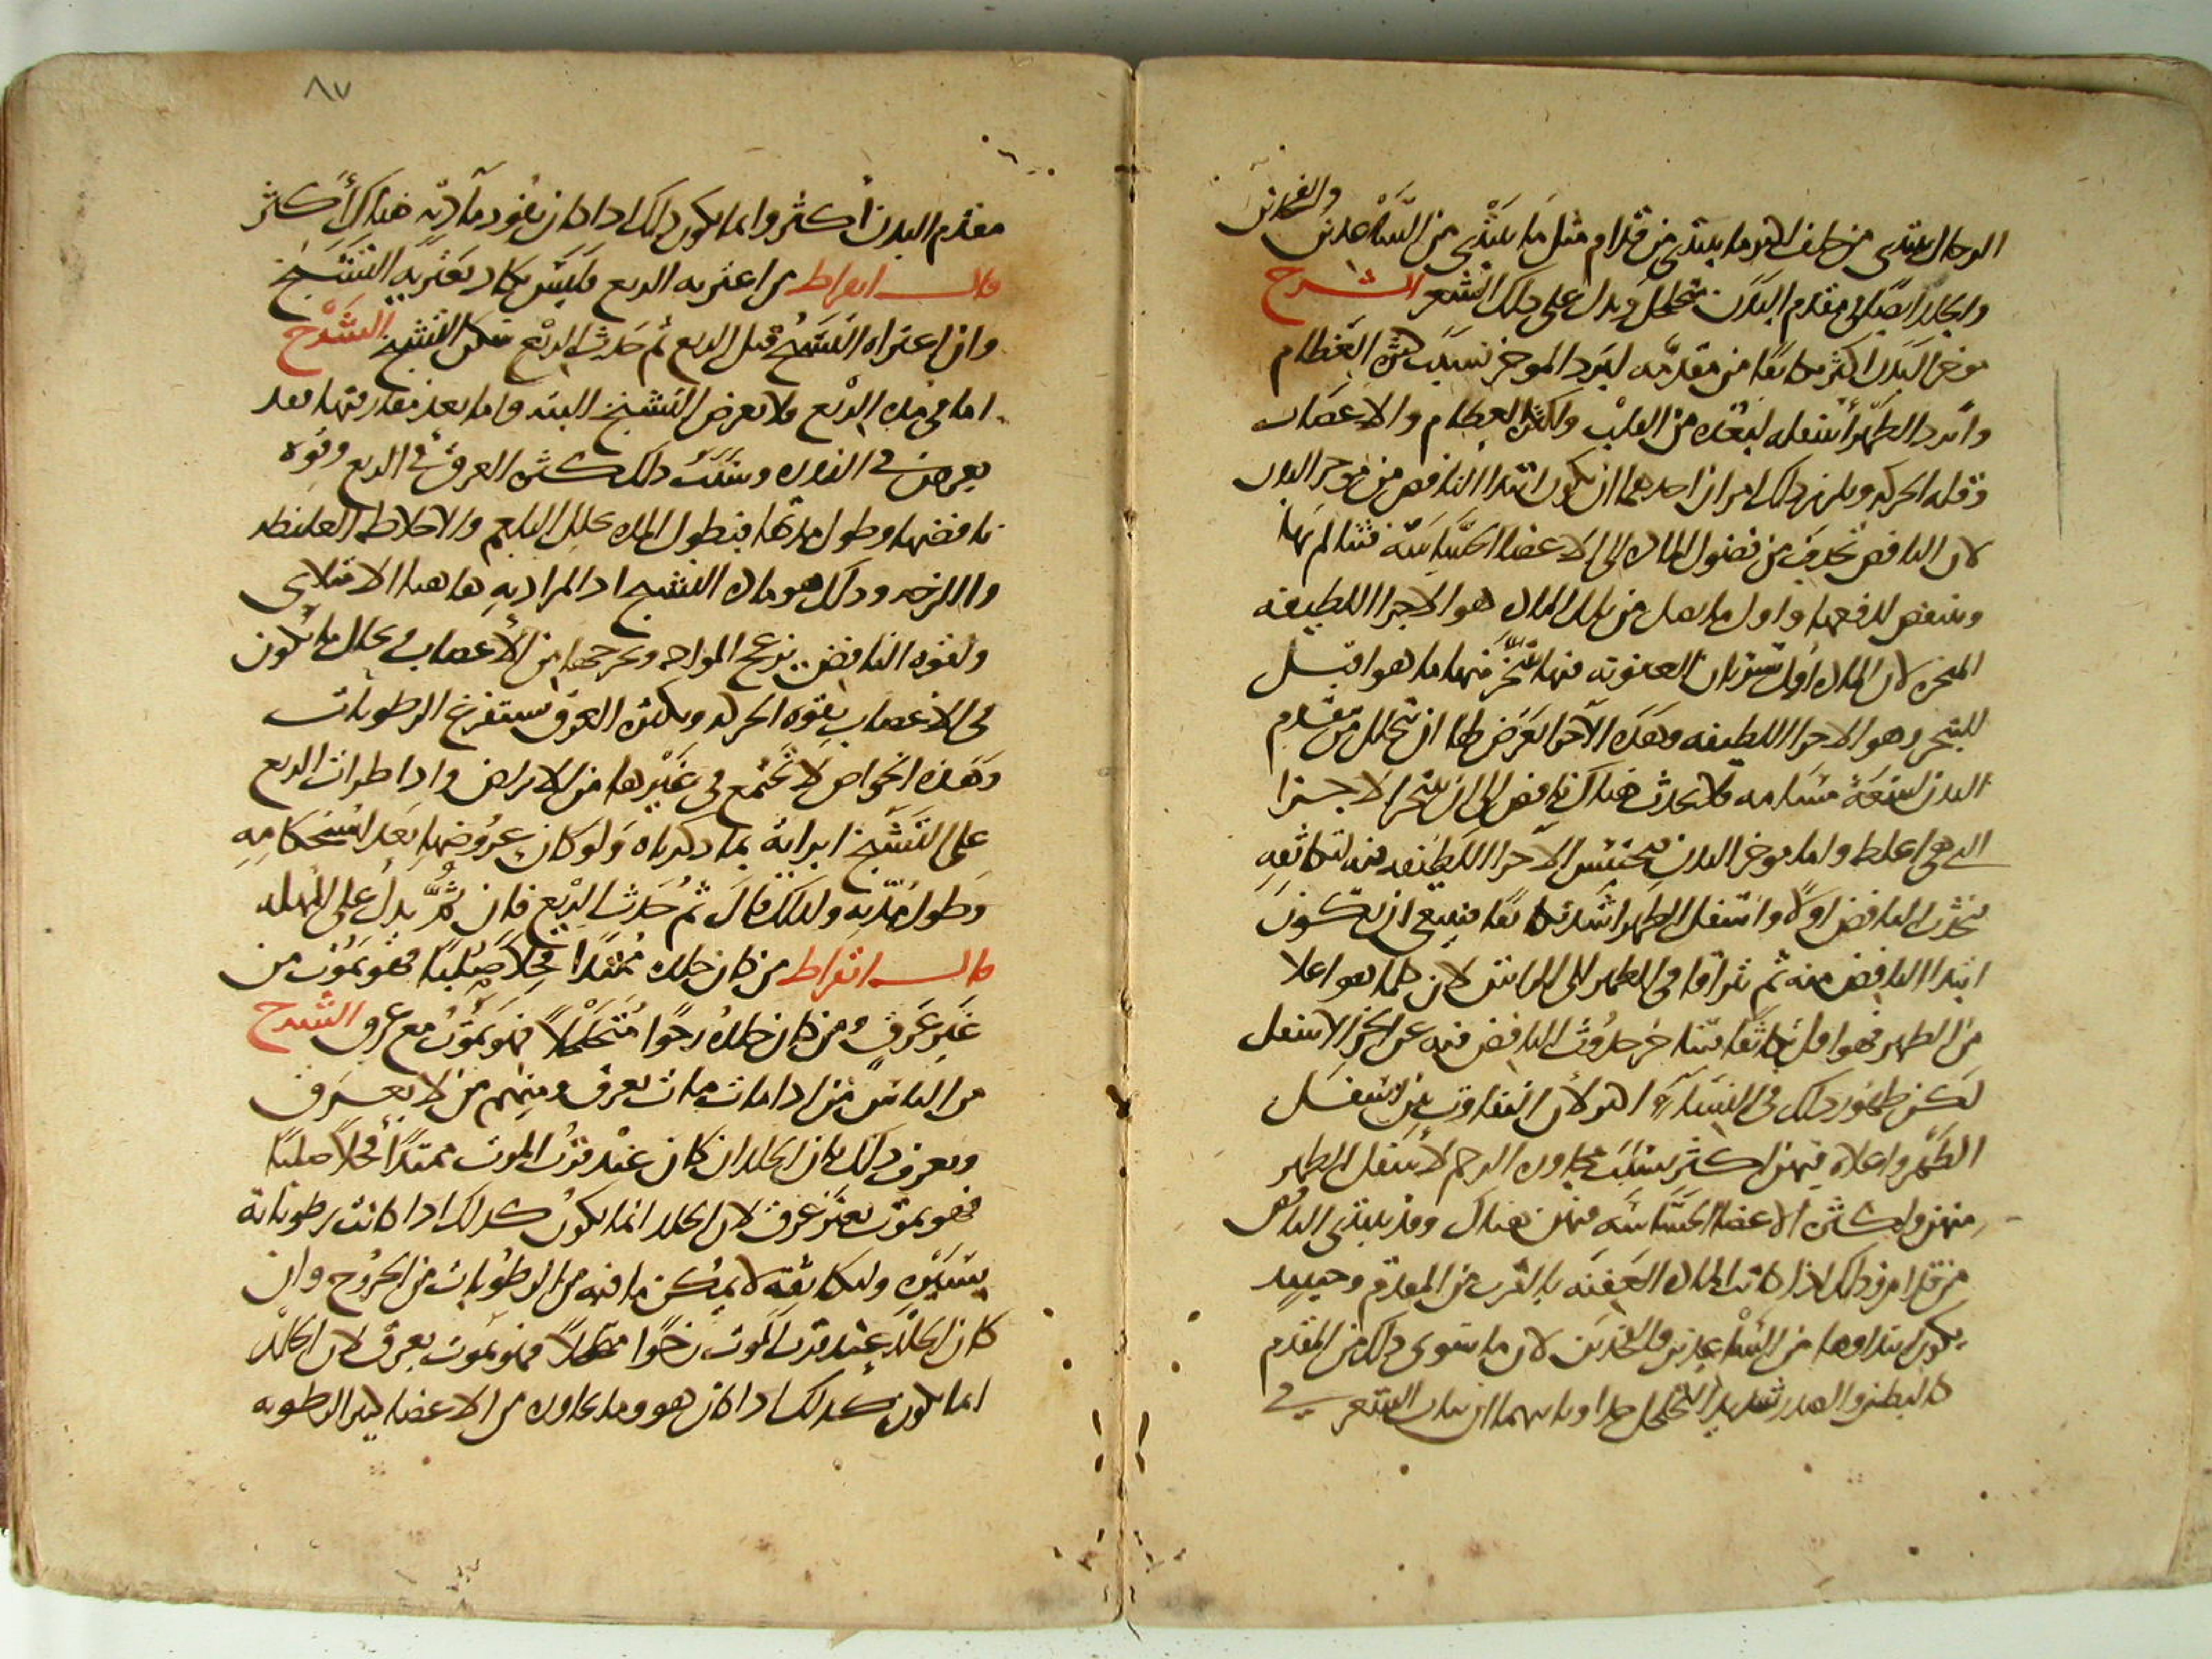 والفخذين
الرجال يبتدى من خلف اكثر ما يبتدى من قدام مثل ما يبتدى من الساعدين
والجلد ايضا فى مقدم البدن متخلخل ويدل على ذلك الشعر الشرح
موخر البدن اكثر تكاثفا من مقدمه لبرد الموخر بسبب كثرة العظام
وابرد الظهر أسفله لبعده من القلب ولكثرة العظام والاعصاب
وقلة الحركه ويلزم ذلك امران احدهما ان يكون ابتدا النافض من موخر البدن
لان النافض تحدث من فضول الماده الى الاعضا الحساسة فتتالم بها
وينتفض لدفعها واول ما يصل من تلك الماده هو الاجزا اللطيفه
المتبخره لان الماده اول سريان العفونه فيها يتبخر منها ما هو اقبل
للتبخر وهو الاجزا اللطيفه وهذه الاجزا يعرض لها ان تتحلل من مقدم
البدن لسعة مسامه فلا يحدث هناك نافض الى ان يتبخر الاجزا
التى هى اغلظ واما موخر البدن فيحتبس الاجزا اللطيفه فيه لتكاثفه
فيحدث النافض اولا واسفل الظهر اشد تكاثفا فينبغى ان يكون
ابتدا النافض منه ثم يتراقا فى الظهر الى الراس لان كلما هو اعلا
من الظهر فهو اقل تكاثفا فيتاخر حدوث النافض فيه عن الجزء الاسفل
لكن ظهور ذلك فى النساء اكثر لان التفاوت بين اسفل
الظهر واعلاه فيهن اكثر بسبب مجاورة الرحم لأسفل الظهر
منهن ولكثرة الاعضا الحساسه فيهن هناك وقد يبتدى النافض
من قدام وذلك اذا كانت الماده العفنه بالقرب من المقدم وحينيد
يكون ابتداوها من الساعدين والفخدين لان ما سوى ذلك من المقدم
كالبطن والصدر شديد التخلخل جدا ومما يبين ذلك الشعر فى
٨٧
مقدم البدن أكثر وانما يكون ذلك اذا كان نفود مآدته هناك أكثر
قال ابقراط من اعترته الربع فليس يكاد يعتريه التشنج
وان اعتراه التشنج قبل الربع ثم حدثت الربع سكن التشنج الشرح
اما فى مدة الربع فلا يعرض التشنج البته واما بعد مفارقتها فقد
يعرض فى الندرة وسبب ذلك كثرة العرق فى الربع وقوة
نافضها وطول مدتها فبطول المده تحلل البلغم والاخلاط الغليظه
واللزجه وذلك هو مادة التشنج اذ المراد به هاهنا الامتلاى
ولقوه النافض يزعج المواد ويخرجها من الأعصاب وتحلل ما يكون
فى الاعصاب بقوة الحركه وبكثرة العرق يستفرغ الرطوبات
وهذه الخواص لا تجتمع فى غيرها من الامراض واذا طرات الربع
على التشنج ابراته بما ذكرناه ولو كان عروضها بعد استحكامه
وطول مدته ولذلك قال ثم حدثت الربع فان ثم يدل على المهله
قال ابقراط من كان جلده ممتدا قحلا صلبا فهو يموت من
غير عرق ومن كان جلده رخوا متخلخلا فهو يموت مع عرق الشرح
من الناس من اذا مات مات بعرق ومنهم من لا يعرق
ويعرف ذلك بان الجلد ان كان عند قرب الموت ممتدا قحلا صلبا
فهو يموت بغير عرق لان الجلد انما يكون كذلك اذا كانت رطوباته
يسيره ولتكاثفه لا يمكن ما فيه من الرطوبات من الخروج وان
كان الجلد عند قرب الموت رخوا متخلخلا فهو يموت بعرق لان الجلد
انما يكون كذلك اذا كان هو وما يجاوره من الاعضا كثير الرطوبه